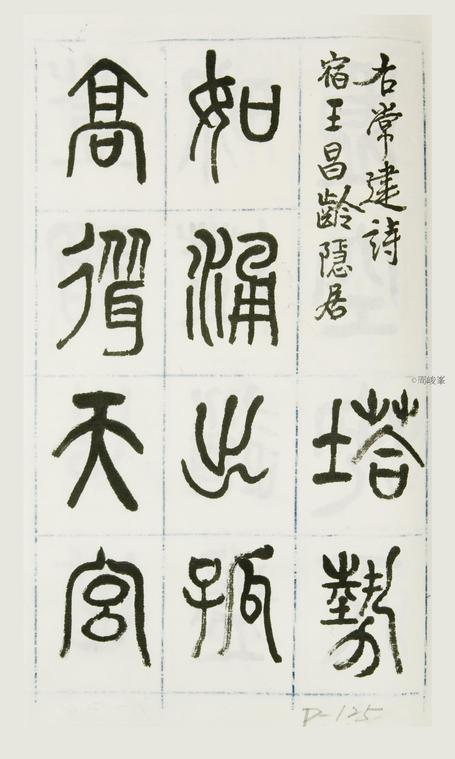 右常建詩
宿王昌齡隱居
塔勢
如涌出孤
高聳天宮
©周峻峯
D-125